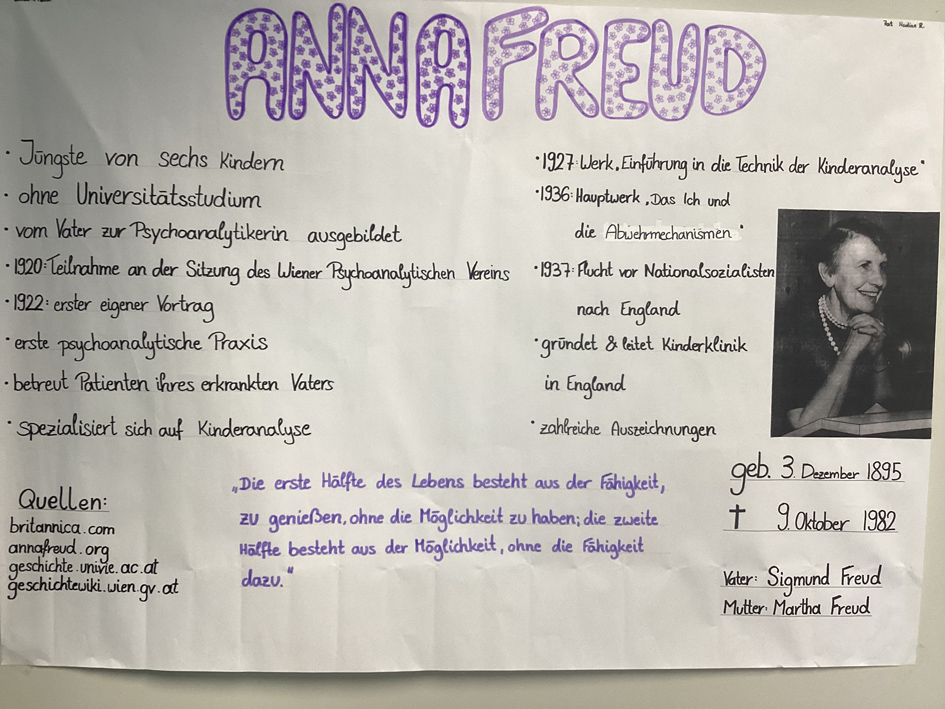 ANNA FREUD
· Jüngste von sechs Kindern
· ohne Universitätsstudium
· vom Vater zur Psychoanalytikerin ausgebildet
· 1920: Teilnahme an der Sitzung des Wiener Psychoanalytischen Vereins
· 1922: erster eigener Vortrag
· erste psychoanalytische Praxis
· betreut Patienten ihres erkrankten Vaters
· spezialisiert sich auf Kinderanalyse
· 1927: Werk „Einführung in die Technik der Kinderanalyse"
· 1936: Hauptwerk „Das Ich und
die Abwehrmechanismen"
· 1937: Flucht vor Nationalsozialisten
nach England
· gründet & leitet Kinderklinik
in England
· zahlreiche Auszeichnungen
geb. 3. Dezember 1895
† 9. Oktober 1982
Vater: Sigmund Freud
Mutter: Martha Freud
„Die erste Hälfte des Lebens besteht aus der Fähigkeit,
zu genießen, ohne die Möglichkeit zu haben; die zweite
Hälfte besteht aus der Möglichkeit, ohne die Fähigkeit
dazu."
Quellen:
britannica.com
annafreud.org
geschichte.univie.ac.at
geschichtewiki.wien.gv.at